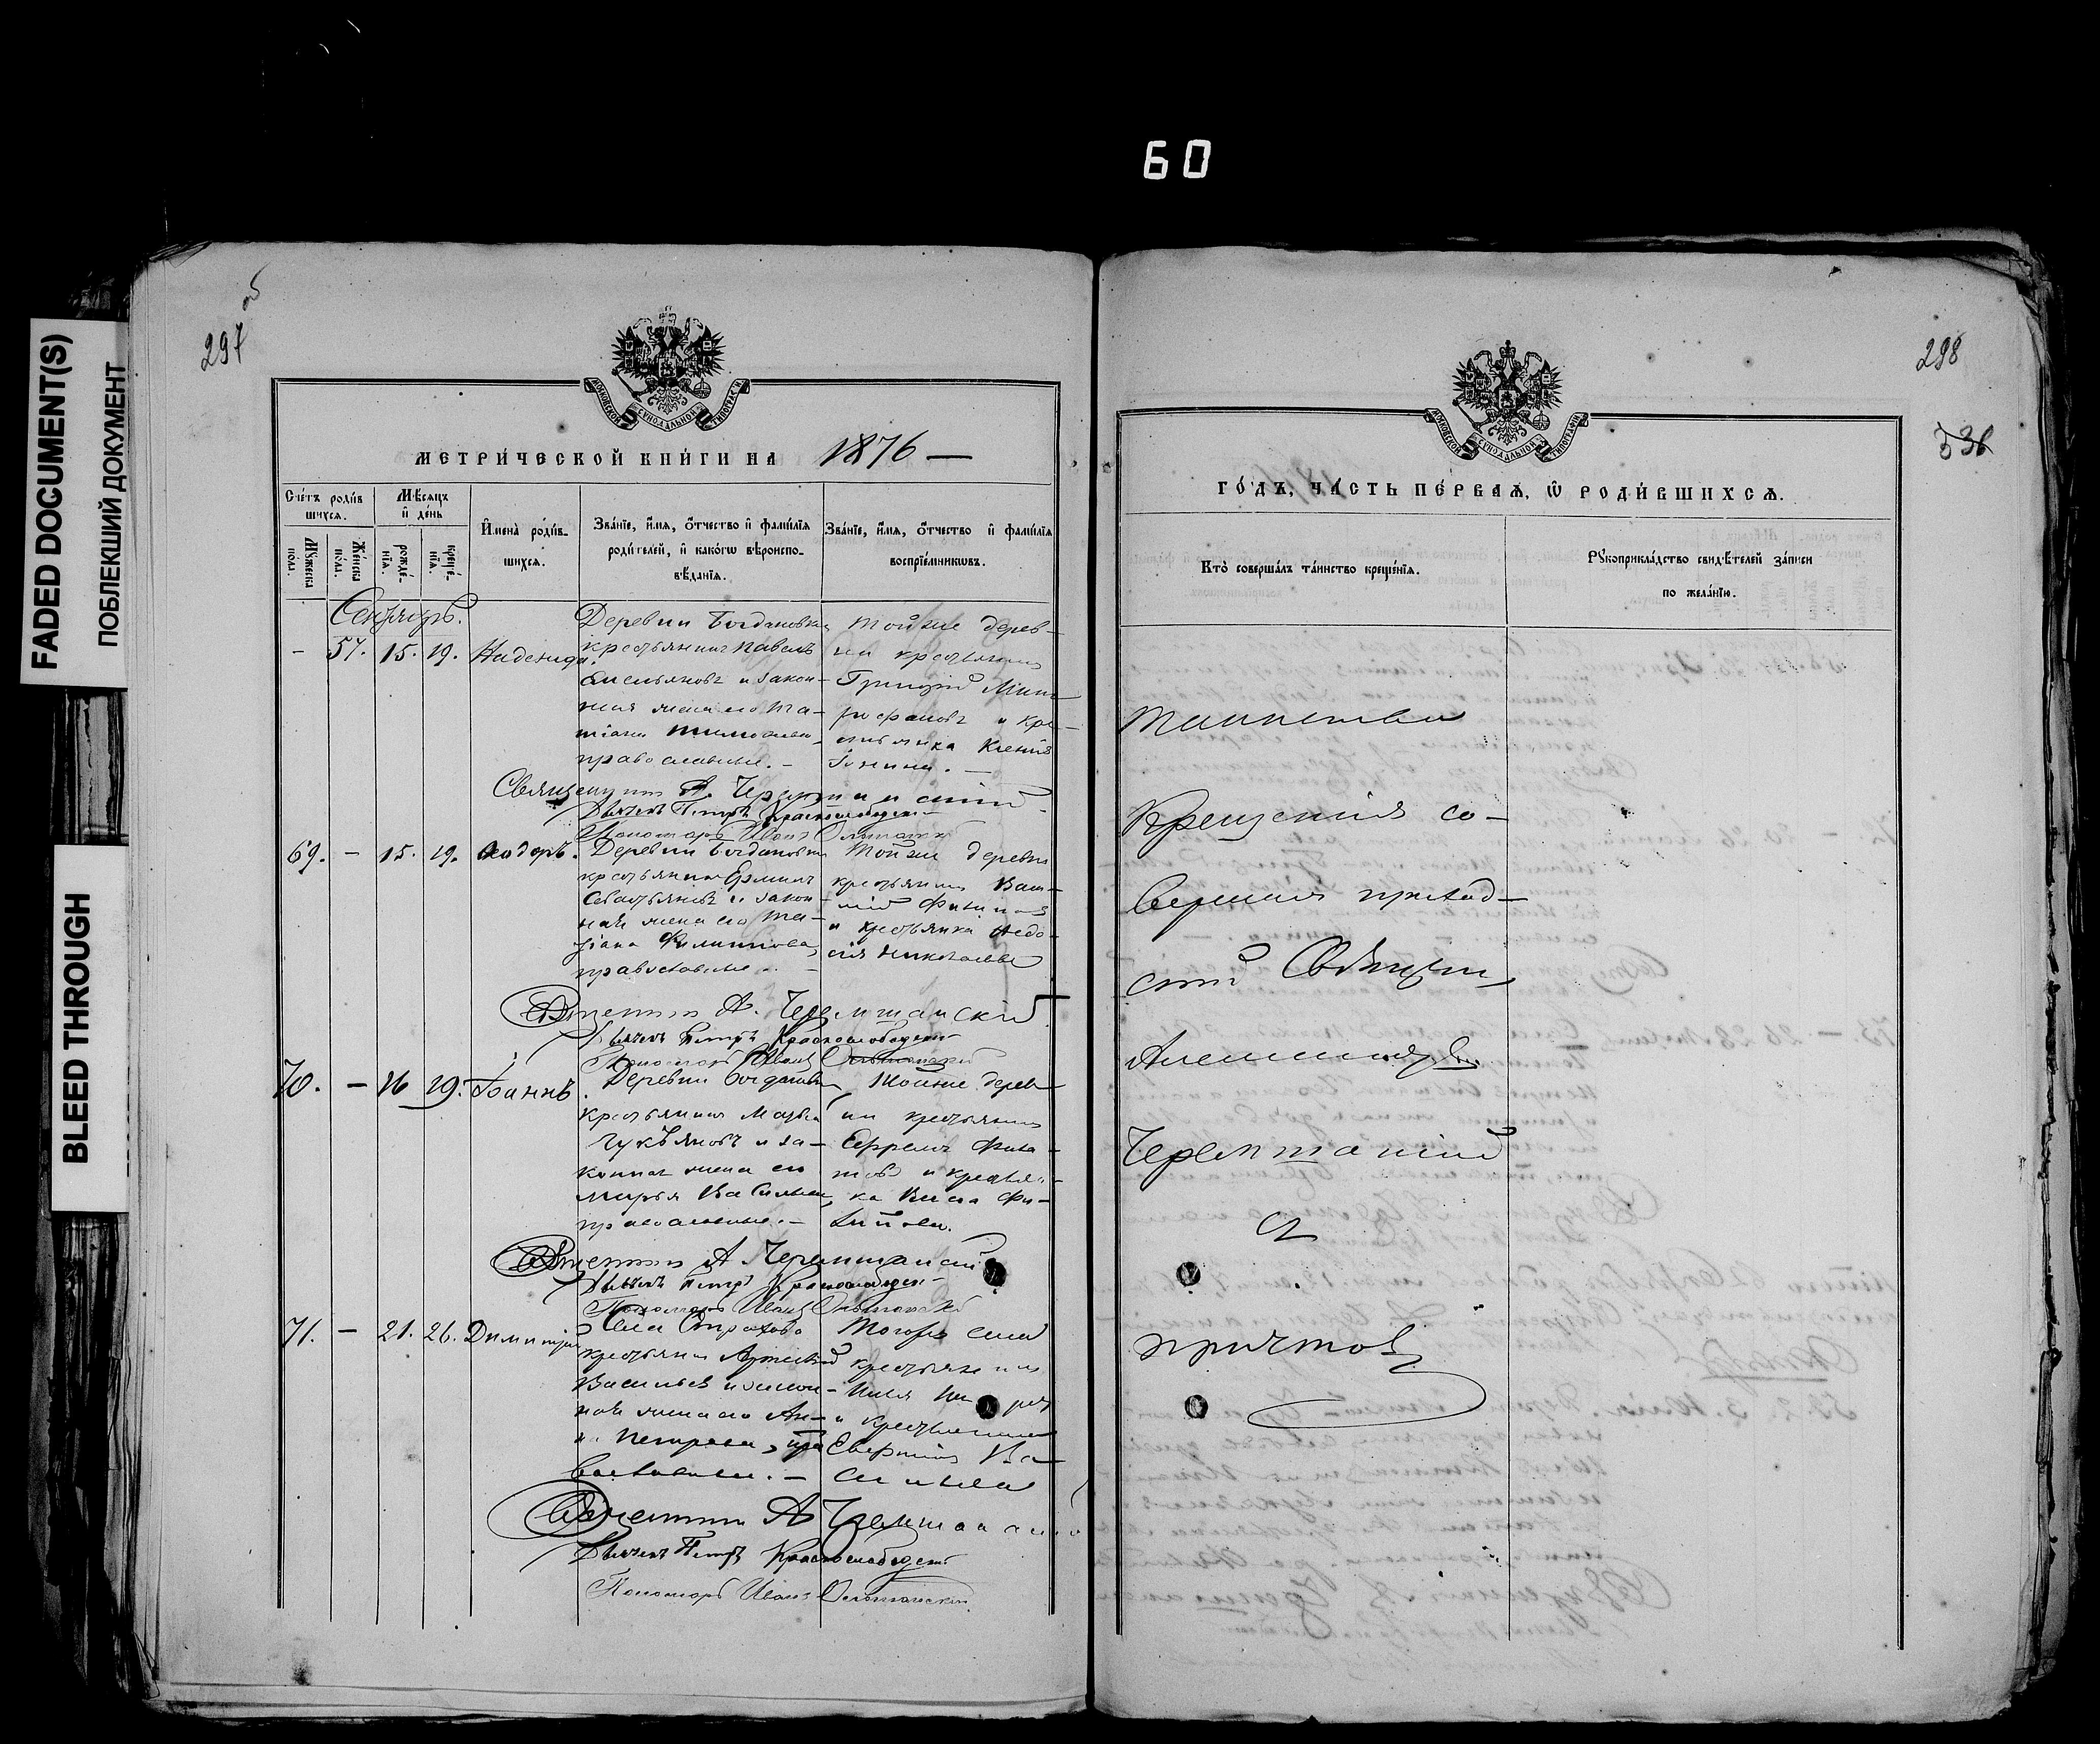 60
FADED DOCUMENT(S)
ПОБЛЕКШИЙ ДОКУМЕНТ
BLEED THROUGH
об
297
МОСКОВСКОЙ СУНОДАЛЬНОЙ ТИПОГРАФІИ
МЕТРИЧЕСКОЙ КНИГИ НА 1876 —
Счетъ родившихся.
Мѣсяцъ и день
Имена родившихся.
Званіе, имя, отчество и фамилія родителей, и какогѡ вѣроисповѣданія.
Званіе, имя, отчество и фамилія воспріемникѡвъ.
Мужеска пола.
Женска пола.
рожденія.
крещенія.
Сентябрь.
– 57. 15. 19. Надежда.
Деревни Богдановки
крестьянинъ Павелъ
Емельяновъ и закон-
ная жена его Та-
тіана
православные. –
Тойже дерев-
ни крестьянинъ
Григорій Мит-
рофановъ и кре-
стьянка Ксенія
Священникъ А. Черемшанскій
Дьячекъ Петръ Краснослободск
Пономарь Иванъ Ольшанскій
69. – 15. 19. Ѳеодоръ.
Деревни Богдановки
крестьянинъ
Севастьяновъ и закон-
ная жена его Та-
тіана Филиппова,
православные. –
Тойже деревни
крестьянинъ Васи-
лій Филиповъ
и крестьянка Ѳедо-
сія Николаева
Священникъ А. Черемшанскій
Дьячекъ Петръ Краснослободск
Пономарь Иванъ Ольшанскій
70. – 16 19. Іоаннъ.
Деревни Богдановки
крестьянинъ Матвей
Лукьяновъ и за-
конная жена его
Марья Васильева,
православные. –
Тойже дерев-
ни крестьянинъ
Ефремъ Фила-
товъ и крестьян-
ка
Священникъ А Черемшанскій
Дьячекъ Петръ Краснослободск
Пономарь Иванъ Ольшанскій
71. – 21. 26. Димитрій
Села Страхово
крестьянинъ
Васильевъ и закон-
ная жена его Ан-
на Петрова, пра-
вославные. –
Тогоже села
крестьянинъ
Илья
и крестьянка
Евфимія Ва-
сильева
Священникъ А Черемшанскій
Дьячекъ Петръ Краснослободск
Пономарь Иванъ Ольшанскій
298
336
МОСКОВСКОЙ СУНОДАЛЬНОЙ ТИПОГРАФІИ
ГОДЪ, ЧАСТЬ ПЕРВАЯ, Ѡ РОДИВШИХСЯ.
Кто совершалъ таинство крещенія.
Рукоприкладство свидѣтелей записи по желанію.
Таинство
Крещенія со-
вершалъ приход-
скій Священ.
Александръ
Черемшанскій
съ
причтомъ